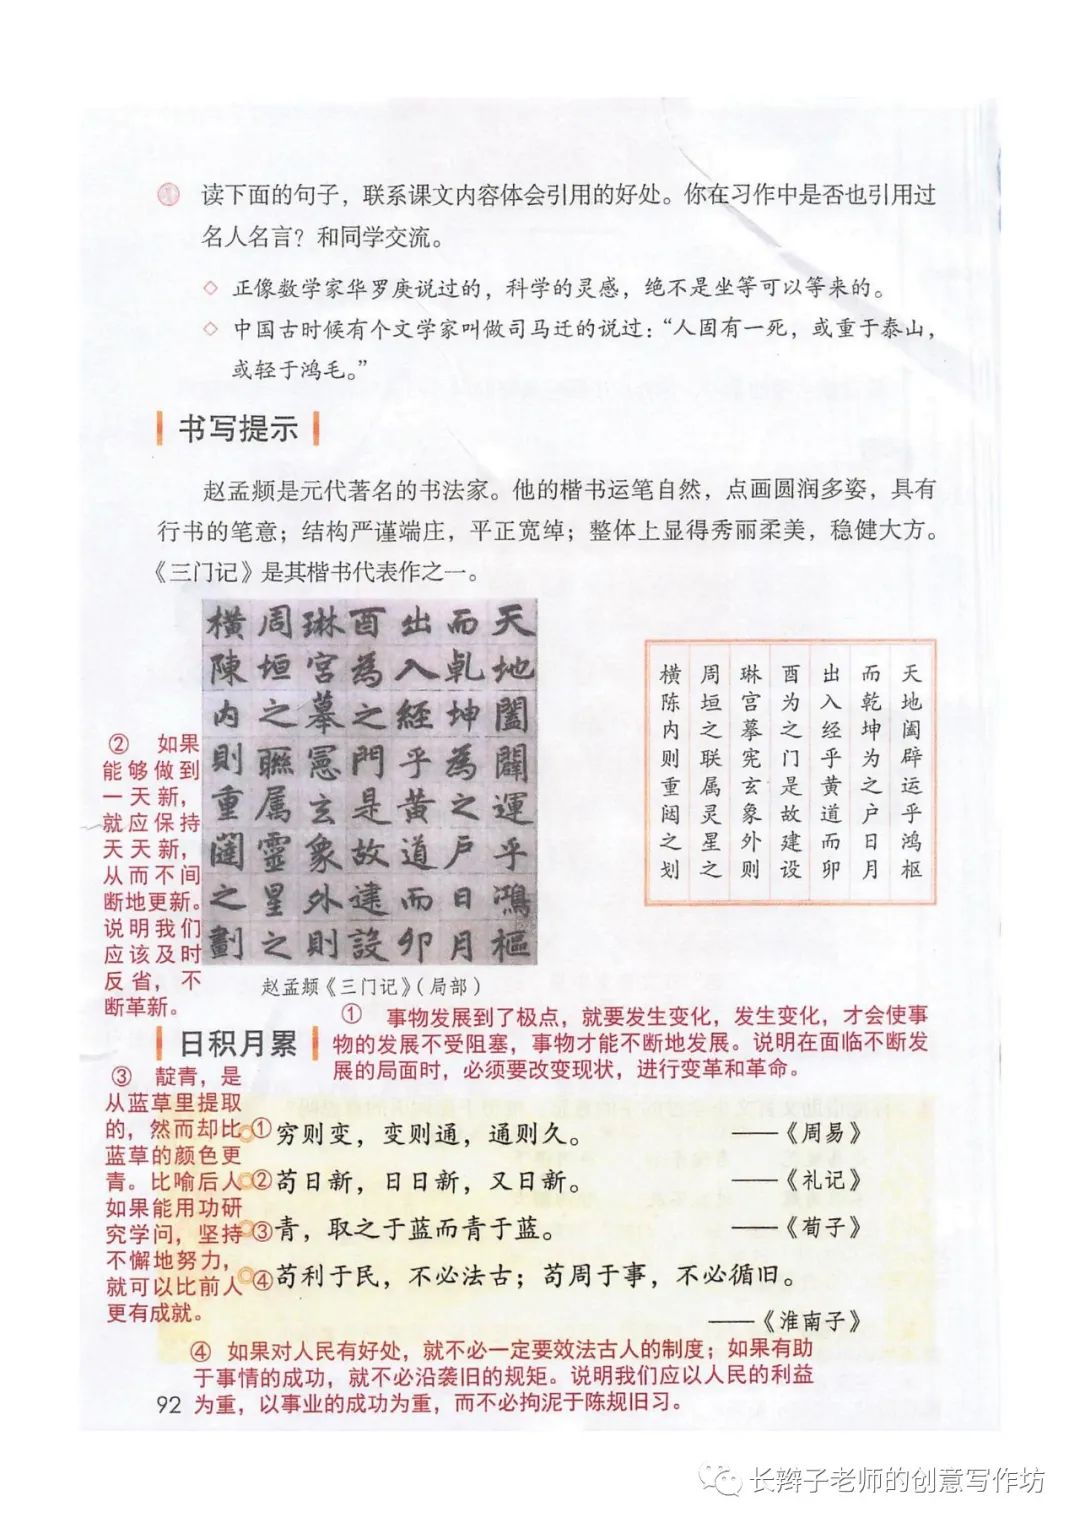 读下面的句子，联系课文内容体会引用的好处。你在习作中是否也引用过
名人名言？和同学交流。
◇ 正像数学家华罗庚说过的，科学的灵感，绝不是坐等可以等来的。
◇ 中国古时候有个文学家叫做司马迁的说过：“人固有一死，或重于泰山，
或轻于鸿毛。”
书写提示
赵孟頫是元代著名的书法家。他的楷书运笔自然，点画圆润多姿，具有
行书的笔意；结构严谨端庄，平正宽绰；整体上显得秀丽柔美，稳健大方。
《三门记》是其楷书代表作之一。
天地闔闢運乎鴻樞
而乾坤為之戶日月
出入經乎黄道而卯
酉為之門是故建設
琳宮摹憲玄象外則
周垣之聮属靈星之
橫陳内則重闥之劃
天地阖辟运乎鸿枢
而乾坤为之户日月
出入经乎黄道而卯
酉为之门是故建设
琳宫摹宪玄象外则
周垣之联属灵星之
横陈内则重闼之划
赵孟頫《三门记》（局部）
② 如果
能够做到
一天新，
就应保持
天天新，
从而不间
断地更新。
说明我们
应该及时
反省，不
断革新。
日积月累
① 事物发展到了极点，就要发生变化，发生变化，才会使事
物的发展不受阻塞，事物才能不断地发展。说明在面临不断发
展的局面时，必须要改变现状，进行变革和革命。
③ 靛青，是
从蓝草里提取
的，然而却比
蓝草的颜色更
青。比喻后人
如果能用功研
究学问，坚持
不懈地努力，
就可以比前人
更有成就。
①穷则变，变则通，通则久。 ——《周易》
②苟日新，日日新，又日新。 ——《礼记》
③青，取之于蓝而青于蓝。 ——《荀子》
④苟利于民，不必法古；苟周于事，不必循旧。
——《淮南子》
④ 如果对人民有好处，就不必一定要效法古人的制度；如果有助
于事情的成功，就不必沿袭旧的规矩。说明我们应以人民的利益
为重，以事业的成功为重，而不必拘泥于陈规旧习。
92
长辫子老师的创意写作坊